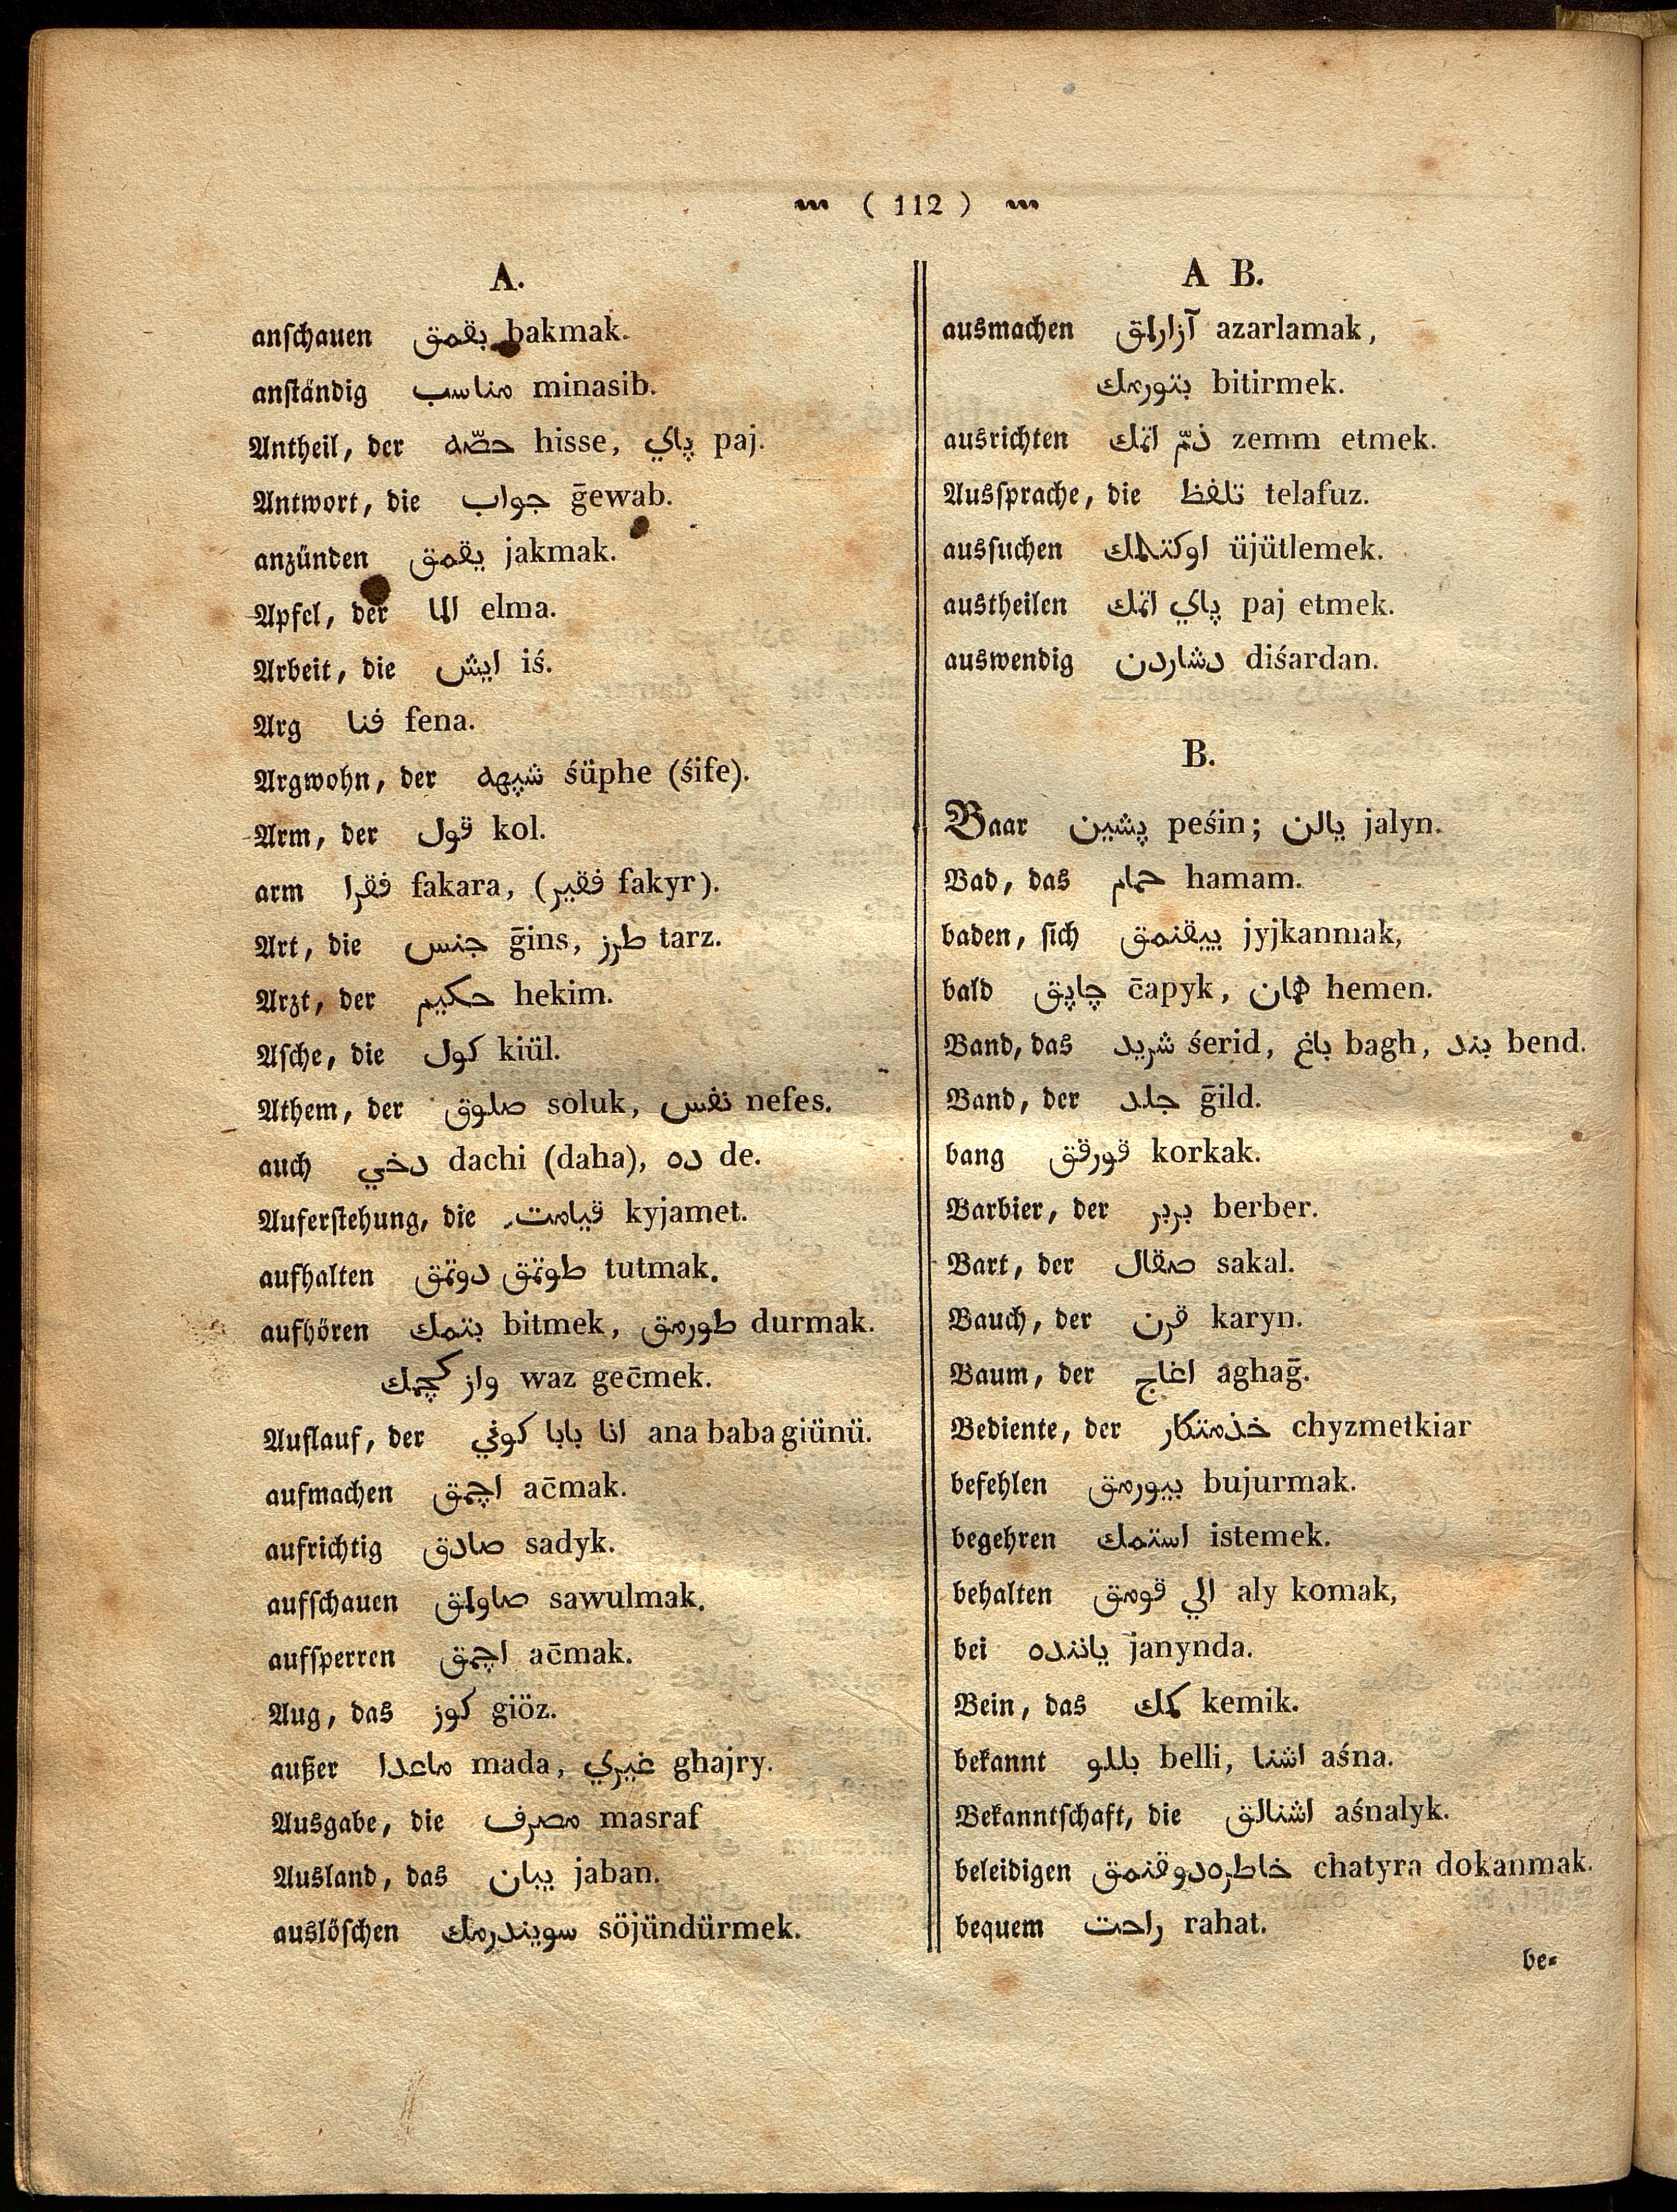 ( 112 )
A.
anschauen بقمق bakmak.
anständig مناسب minasib.
Antheil, der حصّه hisse, پاي paj.
Antwort, die جواب ḡewab.
anzünden يقمق jakmak.
Apfel, der الما elma.
Arbeit, die ايش iś.
Arg فنا fena.
Argwohn, der شپهه śüphe (śife).
Arm, der قول kol.
arm فقرا fakara, (فقير fakyr).
Art, die جنس ḡins, طرز tarz.
Arzt, der حكيم hekim.
Asche, die كول kiül.
Athem, der صلوق soluk, نفس nefes.
auch دخي dachi (daha), ده de.
Auferstehung, die قيامت kyjamet.
aufhalten طوتمق دوتمق tutmak.
aufhören بتمك bitmek, طورمق durmak.
واز كچمك waz gec̄mek.
Auflauf, der انا بابا كوني ana baba giünü.
aufmachen اچمق ac̄mak.
aufrichtig صادق sadyk.
aufschauen صاولمق sawulmak.
aufsperren اچمق ac̄mak.
Aug, das كوز giöz.
außer ماعدا mada, غيري ghajry.
Ausgabe, die مصرف masraf
Ausland, das يبان jaban.
auslöschen سويندرمك söjündürmek.
A B.
ausmachen آزارلمق azarlamak,
بتورمك bitirmek.
ausrichten ذمّ اتمك zemm etmek.
Aussprache, die تلفظ telafuz.
aussuchen اوكتلمك üjütlemek.
austheilen پاي اتمك paj etmek.
auswendig دشاردن diśardan.
B.
Baar پشين peśin; يالن jalyn.
Bad, das حمام hamam.
baden, sich ييقنمق jyjkanmak,
bald چاپق c̄apyk, همان hemen.
Band, das شريد śerid, باغ bagh, بند bend.
Band, der جلد ḡild.
bang قورقق korkak.
Barbier, der بربر berber.
Bart, der صقال sakal.
Bauch, der قرن karyn.
Baum, der اغاج aghaḡ.
Bediente, der خذمتكار chyzmetkiar
befehlen بيورمق bujurmak.
begehren استمك istemek.
behalten الي قومق aly komak,
bei ياننده janynda.
Bein, das كمك kemik.
bekannt بللو belli, اشنا aśna.
Bekanntschaft, die اشنالق aśnalyk.
beleidigen خاطره دوقنمق chatyra dokanmak.
bequem راحت rahat.
be=